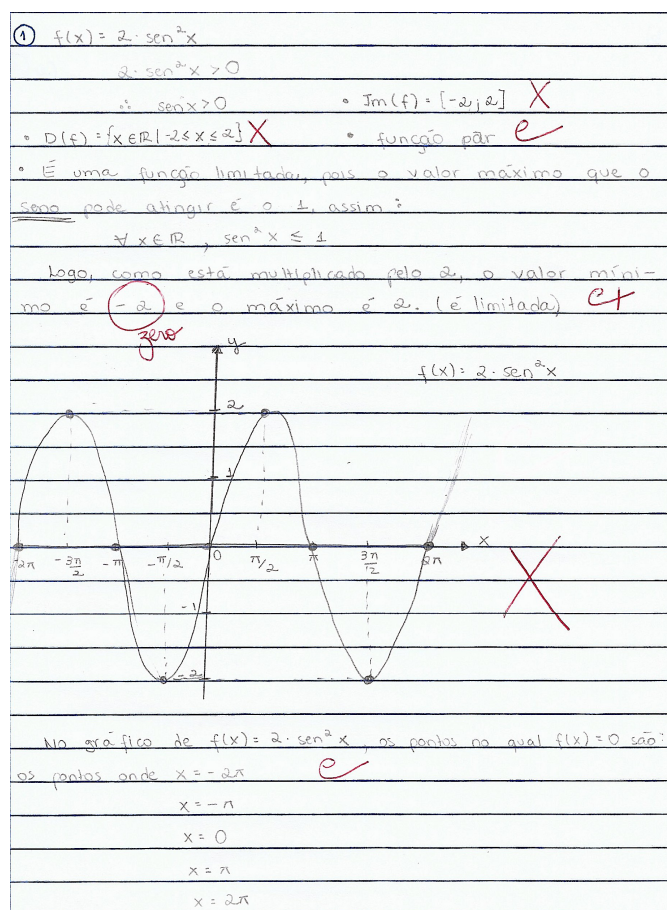 ① f(x) = 2 · sen²x
2 · sen²x > 0
∴ sen x > 0
• Im(f) = [-2; 2] X
• D(f) = {x ∈ ℝ | -2 ≤ x ≤ 2} X
• função par C
• É uma função limitada, pois o valor máximo que o
seno pode atingir é o 1, assim :
∀ x ∈ ℝ , sen²x ≤ 1
Logo, como está multiplicada pelo 2, o valor míni-
mo é -2 e o máximo é 2. (é limitada)
zero
y
f(x) = 2 · sen²x
2
1
x
-2π -3π/2 -π -π/2 0 π/2 π 3π/2 2π
-1
-2
X
No gráfico de f(x) = 2 · sen²x, os pontos no qual f(x) = 0 são:
os pontos onde x = -2π C
x = -π
x = 0
x = π
x = 2π